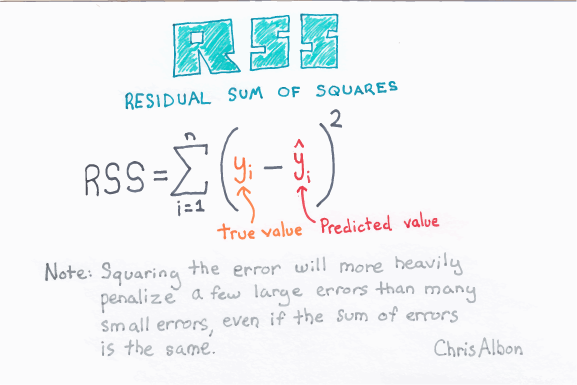 RSS
RESIDUAL SUM OF SQUARES
RSS = n∑i=1 (yi − ŷi)2
true value Predicted value
Note: Squaring the error will more heavily
penalize a few large errors than many
small errors, even if the sum of errors
is the same.
Chris Albon